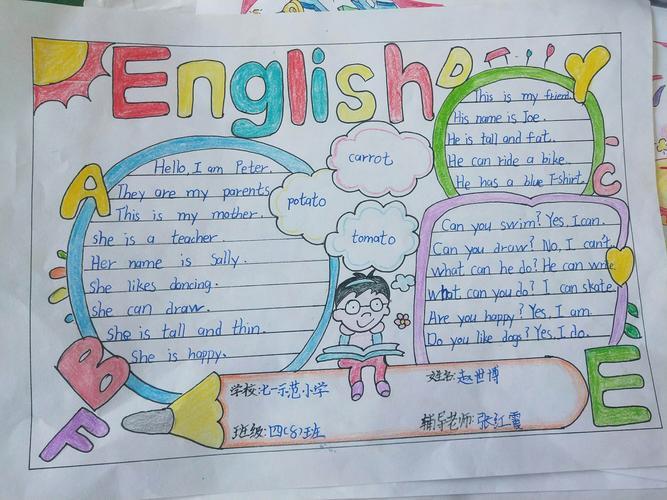 English
A
B
F
D
Y
C
E
Hello, I am Peter.
They are my parents
This is my mother.
she is a teacher.
Her name is Sally.
She likes dancing.
she can draw.
She is tall and thin.
She is happy.
carrot
potato
tomato
This is my friend.
His name is Joe.
He is tall and fat.
He can ride a bike.
He has a blue T-shirt.
Can you swim? Yes, I can.
Can you draw? No, I can't
What can he do? He can write
What can you do? I can skate
Are you happy? Yes, I am.
Do you like dogs? Yes, I do.
学校:七一示范小学
姓名:赵世博
班级:四(8)班
辅导老师:张红霞